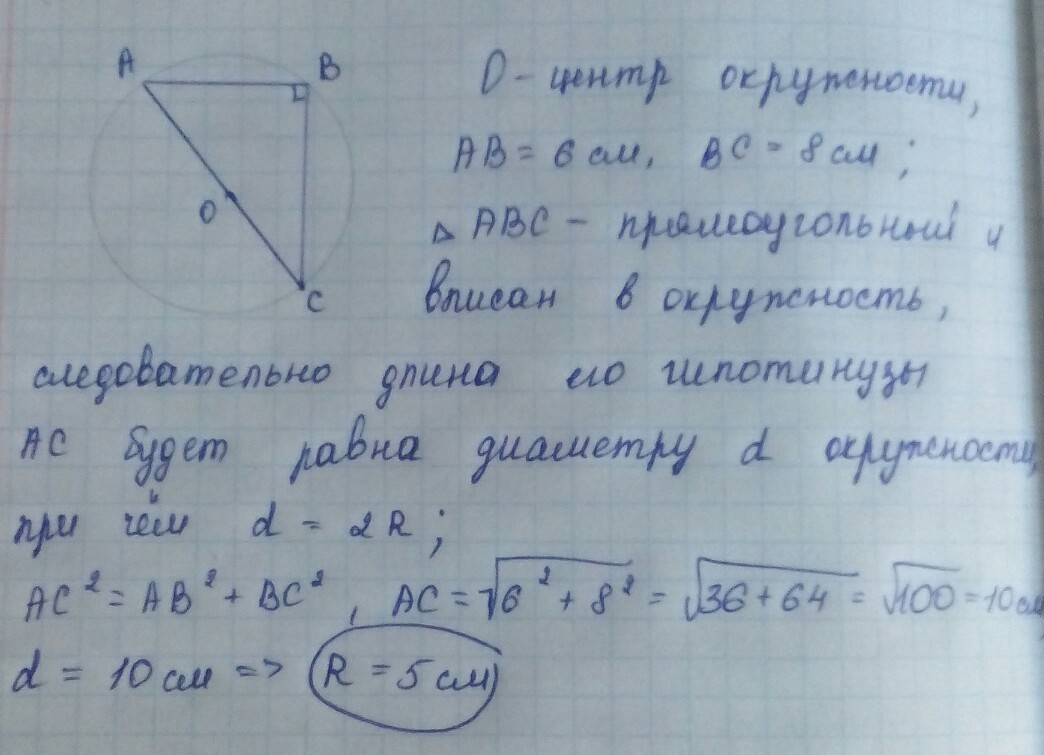 A B
O - центр окружности,
AB = 6 см, BC = 8 см ;
△ ABC - прямоугольный и
O
C
вписан в окружность,
следовательно длина его гипотинузы
AC будет равна диаметру d окружности,
при чём d = 2R ;
AC² = AB² + BC², AC = √6² + 8² = √36 + 64 = √100 = 10 см,
d = 10 см => R = 5 см